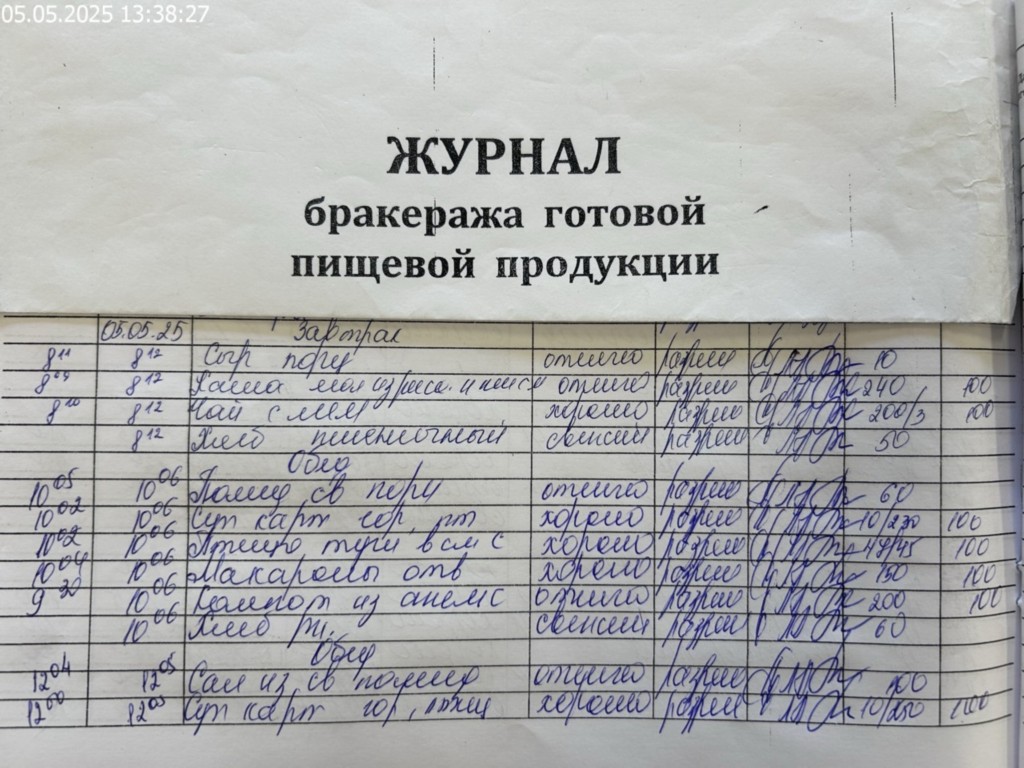 05.05.2025 13:38:27
ЖУРНАЛ
бракеража готовой
пищевой продукции
05.05.25 Завтрак
8 11 8 12 Сыр порц отлично разреш 10
8 09 8 12 Каша мол из отлично разреш 240 100
8 10 8 12 Чай с лим хорошо разреш 200/3 100
8 12 Хлеб пшеничный свежий разреш 50
Обед
10 05 10 06 Помид св порц отлично разреш 60
10 02 10 06 Суп карт гор, пт хорошо разреш 10/230 100
10 02 10 06 Птица туш в см с хорошо разреш 45/45 100
10 04 10 06 Макароны отв хорошо разреш 150 100
9 30 10 06 Компот из апельс отлично разреш 200 100
10 06 Хлеб рж. свежий разреш 60
Обед
12 04 12 05 Сал из св помид отлично разреш 100
12 00 12 05 Суп карт гор, птиц хорошо разреш 10/250 100